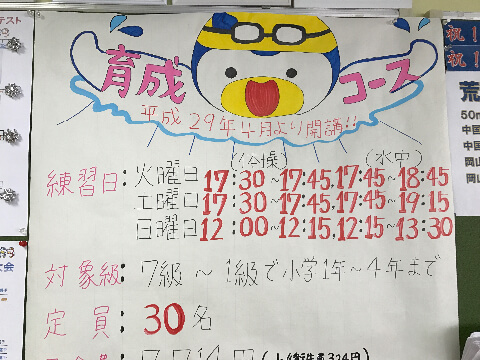 育成
コース
平成29年4月より開講!!
(体操) (水中)
練習日:火曜日 17:30~17:45, 17:45~18:45
土曜日 17:30~17:45, 17:45~19:15
日曜日 12:00~12:15, 12:15~13:30
対象級:7級~1級で小学1年~4年まで
定員:30名
祝!
祝!
荒
50m
中国
中国
岡山
岡山